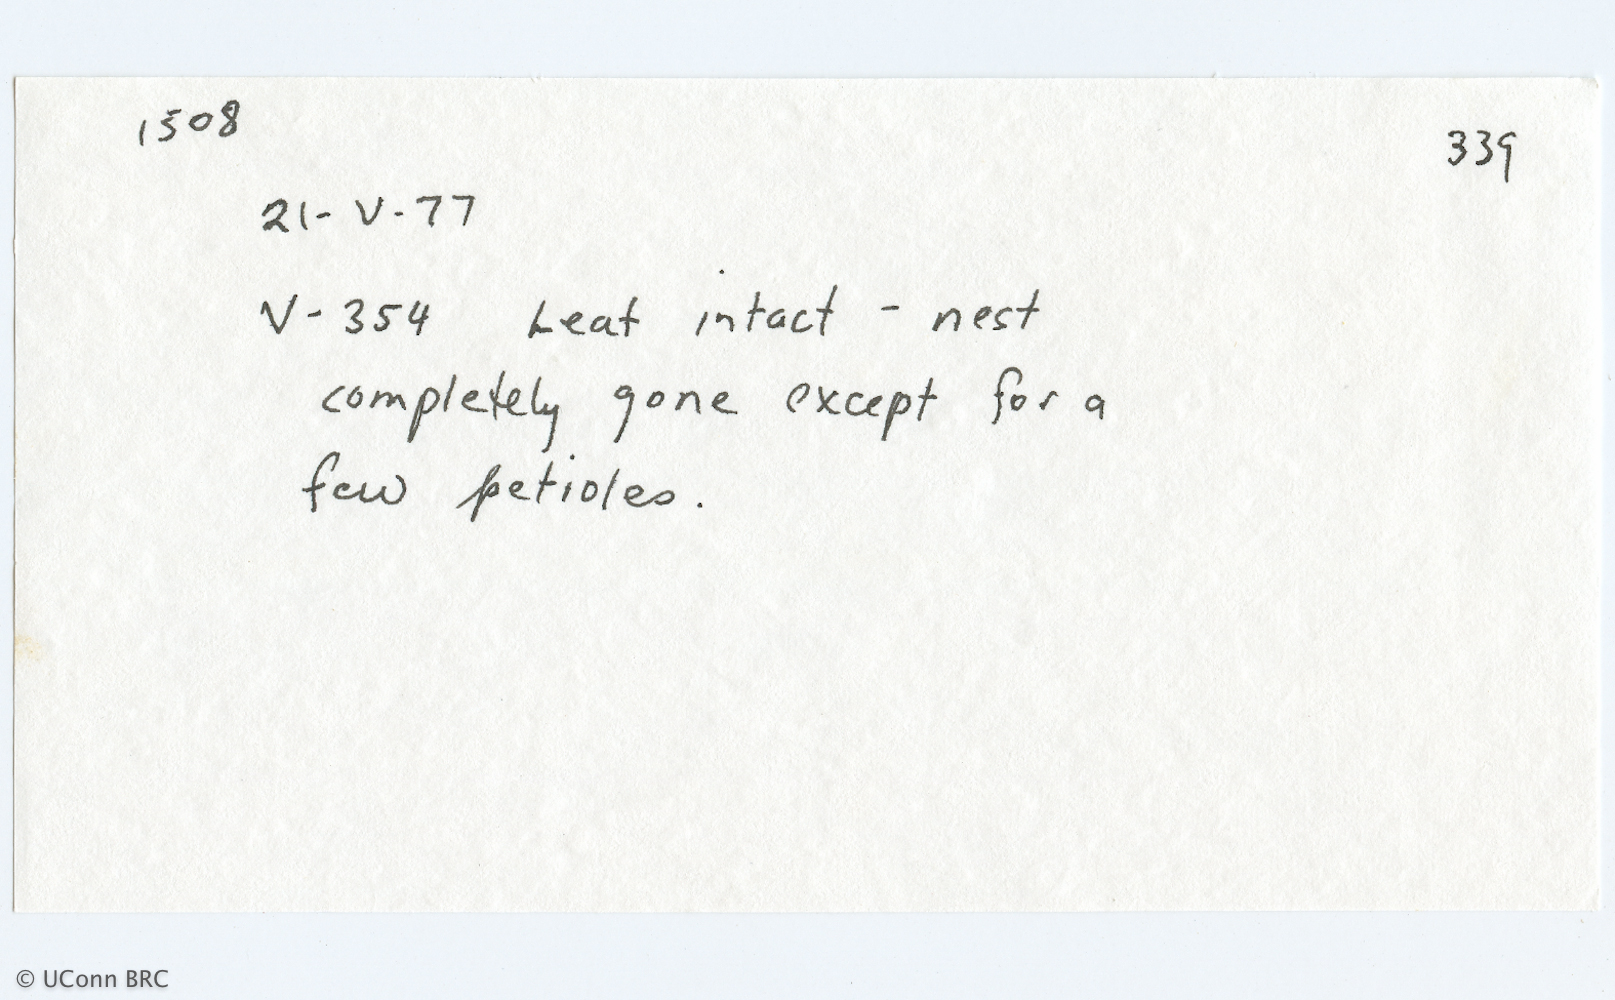 1508
339
21-V-77
V-354 Leaf intact - nest
completely gone except for a
few petioles.
© UConn BRC